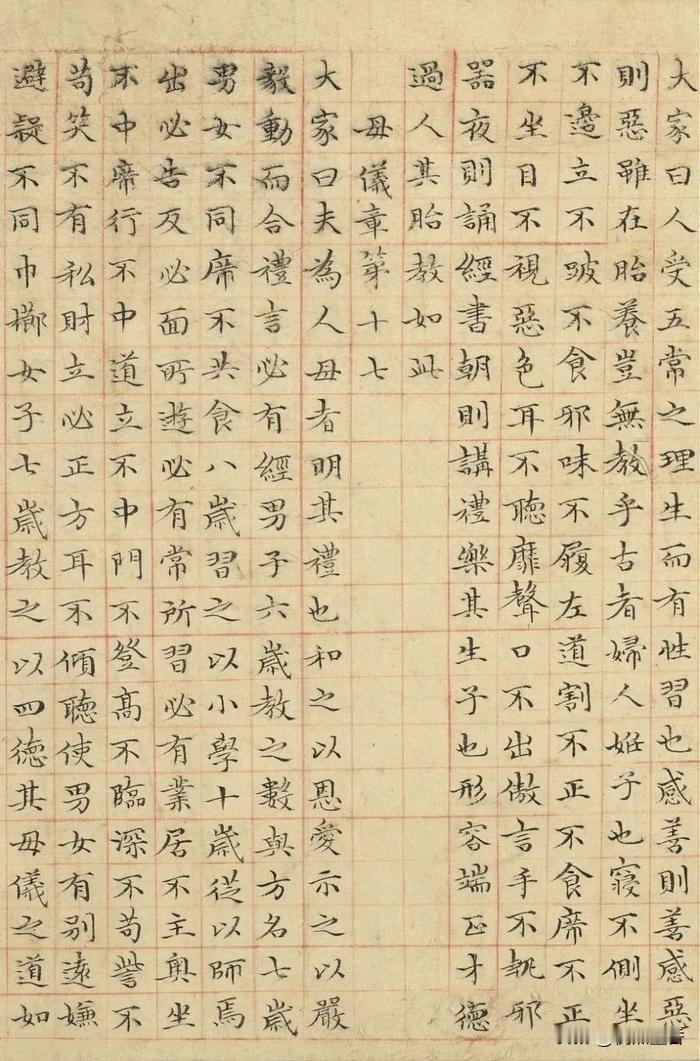 大家曰人受五常之理生而有性習也感善則善感惡
則惡雖在胎養豈無教乎古者婦人姙子也寢不側坐
不邊立不跛不食邪味不履左道割不正不食席不正
不坐目不視惡色耳不聽靡聲口不出傲言手不執邪
器夜則誦經書朝則講禮樂其生子也形容端正才德
過人其胎教如此
母儀章第十七
大家曰夫為人母者明其禮也和之以恩愛示之以嚴
毅動而合禮言必有經男子六歲教之數與方名七歲
男女不同席不共食八歲習之以小學十歲從以師焉
出必告反必面所遊必有常所習必有業居不主奧坐
不中席行不中道立不中門不登高不臨深不苟訾不
苟笑不有私財立必正方耳不傾聽使男女有別遠嫌
避疑不同巾櫛女子七歲教之以四德其母儀之道如